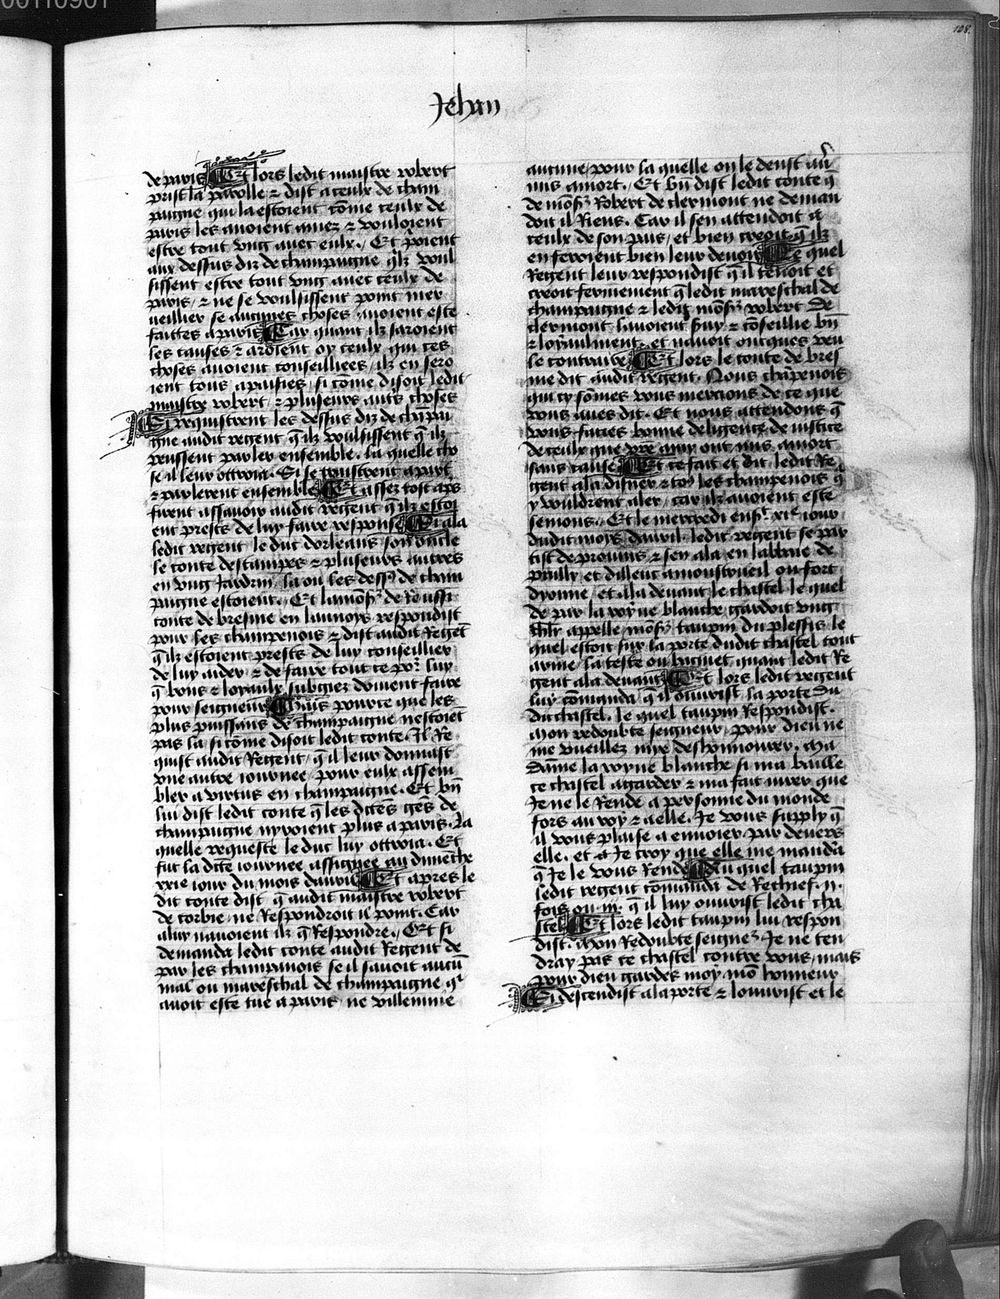 00110901
108.
Jehan
de paris Et lors ledit maistre robert
prist la parolle & dist a ceulx de cham
paigne qui la estoient cōme ceulx de
paris les auoient amez & vouloient
estre tout vng auec eulx. Et prioient
aux dessus diz de champaigne q̄lz voul
sissent estre tout vng auec ceulx de
paris, & ne se voulsissent point mer
ueillier se aucunes choses auoient este
faittes a paris Car quant ilz saroient
les causes & aroient oy ceulx qui ces
choses auoient conseilliees, ilz en sero
ient tous apaisies, si cōme disoit ledit
maistre robert, & plusieurs autȓs choses
Si requistrent les dessus diz de chāpai
gne audit regent q̄ ilz voulsissent q̄ ilz
peussent parler ensemble. la quelle cho
se il leur ottroia. Si se traistrent a part
& parlerent ensemble Et assez tost apȓs
firent assauoir audit regent q̄ ilz estoi
ent prests de luy faire response Si ala
ledit regent le duc dorleans son oncle
le conte destampes & plusieurs autres
en vng Jardin, la ou les dess⁹ de cham
paigne estoient. Et lamōsr̄ de Roussi
conte de bresme en launoys respondist
pour les champenois & dist audit Regēt
q̄ ilz estoient prests de luy conseillier
de luy aider & de faire tout ce por̄ luy
q̄ bons & loyaulx subgiez doiuent faire
pour seigneur Mais pource que les
plus puissans de champaigne nestoiēt
pas la, si cōme disoit ledit conte. Il Re
quist audit Regent, q̄ il leur donnast
vne autre iournee, pour eulx assem
bler a virtus en champaigne. Et bn̄
lui dist ledit conte q̄ les dictes gēs de
champaigne nyroient plus a paris. La
quelle requeste le duc luy ottroia. Et
fut la dicte iournee assignee au dimēche
xxix iour du mois dauril Et apres le
dit conte dist q̄ audit maistre robert
de corbie ne Respondroit il point. Car
a luy nauoient ilz q̄ Respondre. Et si
demanda ledit conte audit Regent de
par les champainois se il sauoit aucū
mal ou mareschal de champaigne q̄
auoit este tue a paris, ne villennie
aucune, pour la quelle on le deust aū
mis amort. Et bn̄ dist ledit conte q̄
de mōsr̄ Robert de clermont ne deman
doit il Riens. Car il sen attendoit a
ceulx de son pais, et bien creoit q̄ ilz
en feroient bien leur deuoir Le quel
Regent leur respondist q̄ il tenoit et
creoit fermement q̄ ledit mareschal de
champaigne & ledit mōsr̄ robert de
clermont lauoient s̄uy & cōseillie bn̄
& loyaulment, et nauoit oncques veu
le contraire Et lors le conte de bres
me dit audit regent. Nous chāpenois
qui cy sōmes vous mercions de ce que
vous aues dit. Et nous attendons q̄
vous facies bonne deligence de iustice
de ceulx que vre amy ont mis amort
sans cause Et ce fait et dit, ledit Re
gent ala disner & to⁹ les champenois q̄
y vouldrent aler, car ilz auoient este
semons. Et le mercredi ens̄t xie iour
dudit moys dauril, ledit regent se par
tist de prouuins & sen ala en labbaie de
pruilly et dilleuc amoustrueil ou fort
dyonne, et ala deuant le chastel le quel
de par la royne blanche gardoit vng
chlr̄ appelle mōsr̄ taupin du plessis le
quel estoit sur la porte dudit chastel tout
arme, la teste ou bacinet, quant ledit Re
gent ala deuant Et lors ledit regent
luy cōmanda q̄ il ouurist la porte du
du chastel. le quel taupin Respondist.
Mon redoubte seigneur, pour dieu ne
me vueillez mye deshonnourer. Ma
dāme la royne blanche si ma baille
ce chastel agarder & ma fait iurer que
Je ne le Rende a personne du monde
fors au roy & a elle. Je vous supply q̄
il vous plaise a enuoier par deuers
elle. et a Je croy que elle me mandr̄a
q̄ Je le vous Rende Au quel taupin
ledit regent cōmanda de Rechief .ii.
fois ou .iii. q̄ il luy ouurist ledit cha
stel Et lors ledit taupin lui respon
dist. Mon Redoubte seigner̄ Je ne ten
dray pas ce chastel contre vous, mais
pour dieu gardes moy mō honneur
Si descendist ala porte & louurist et le